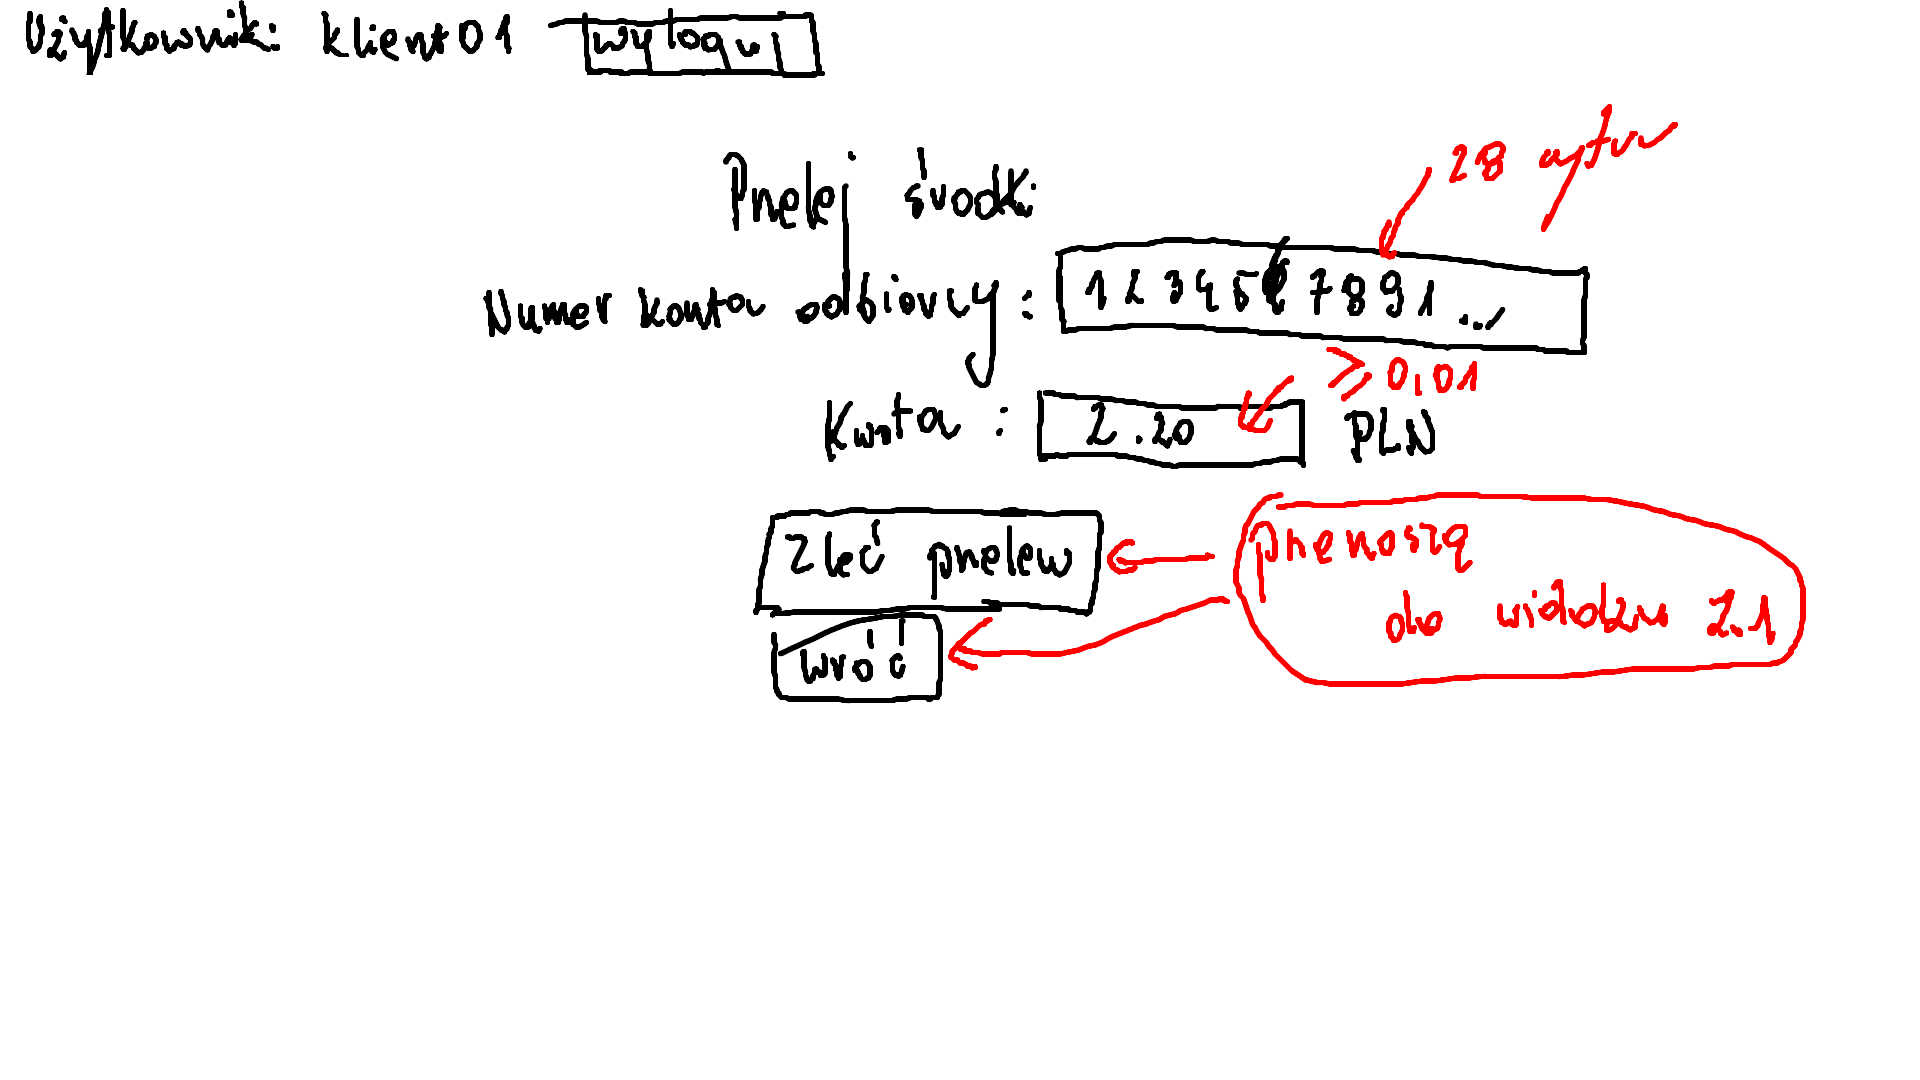 Użytkownik: klient01 wyloguj
28 cyfr
Przelej środki
Numer konta odbiorcy: 1234567891...
≥ 0,01
Kwota: 2.20 PLN
Zleć przelew
przenoszą
do widoku 2.1
wróć